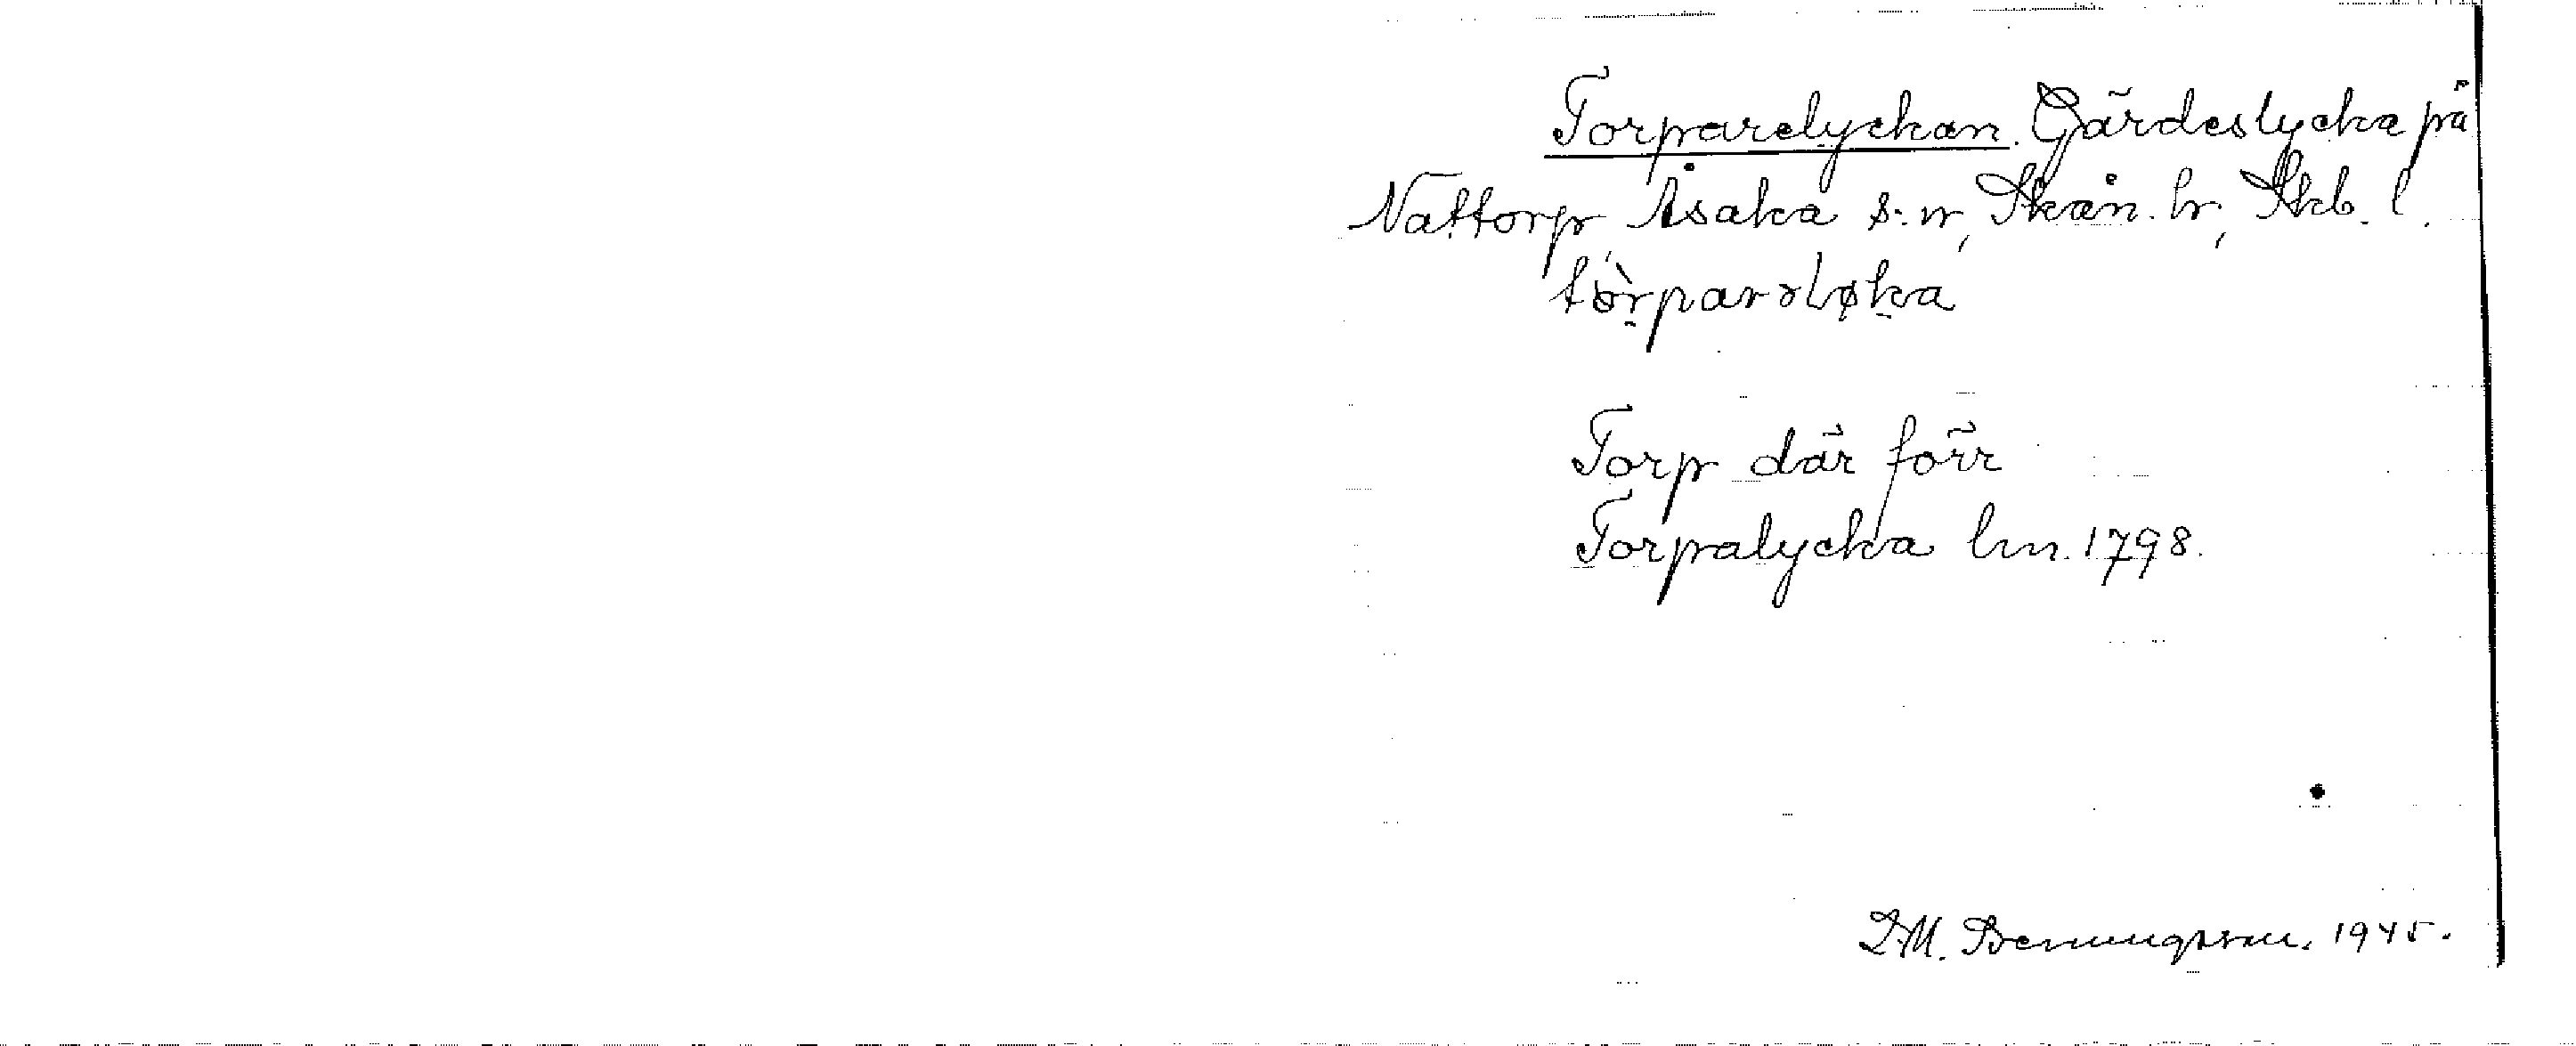 Torparelyckan. Gärdeslycka på
Nattorp, Åsaka s:n, Skån. hr, Skb. l.
Torp där förr
Torpalycka lm. 1798.
1945.